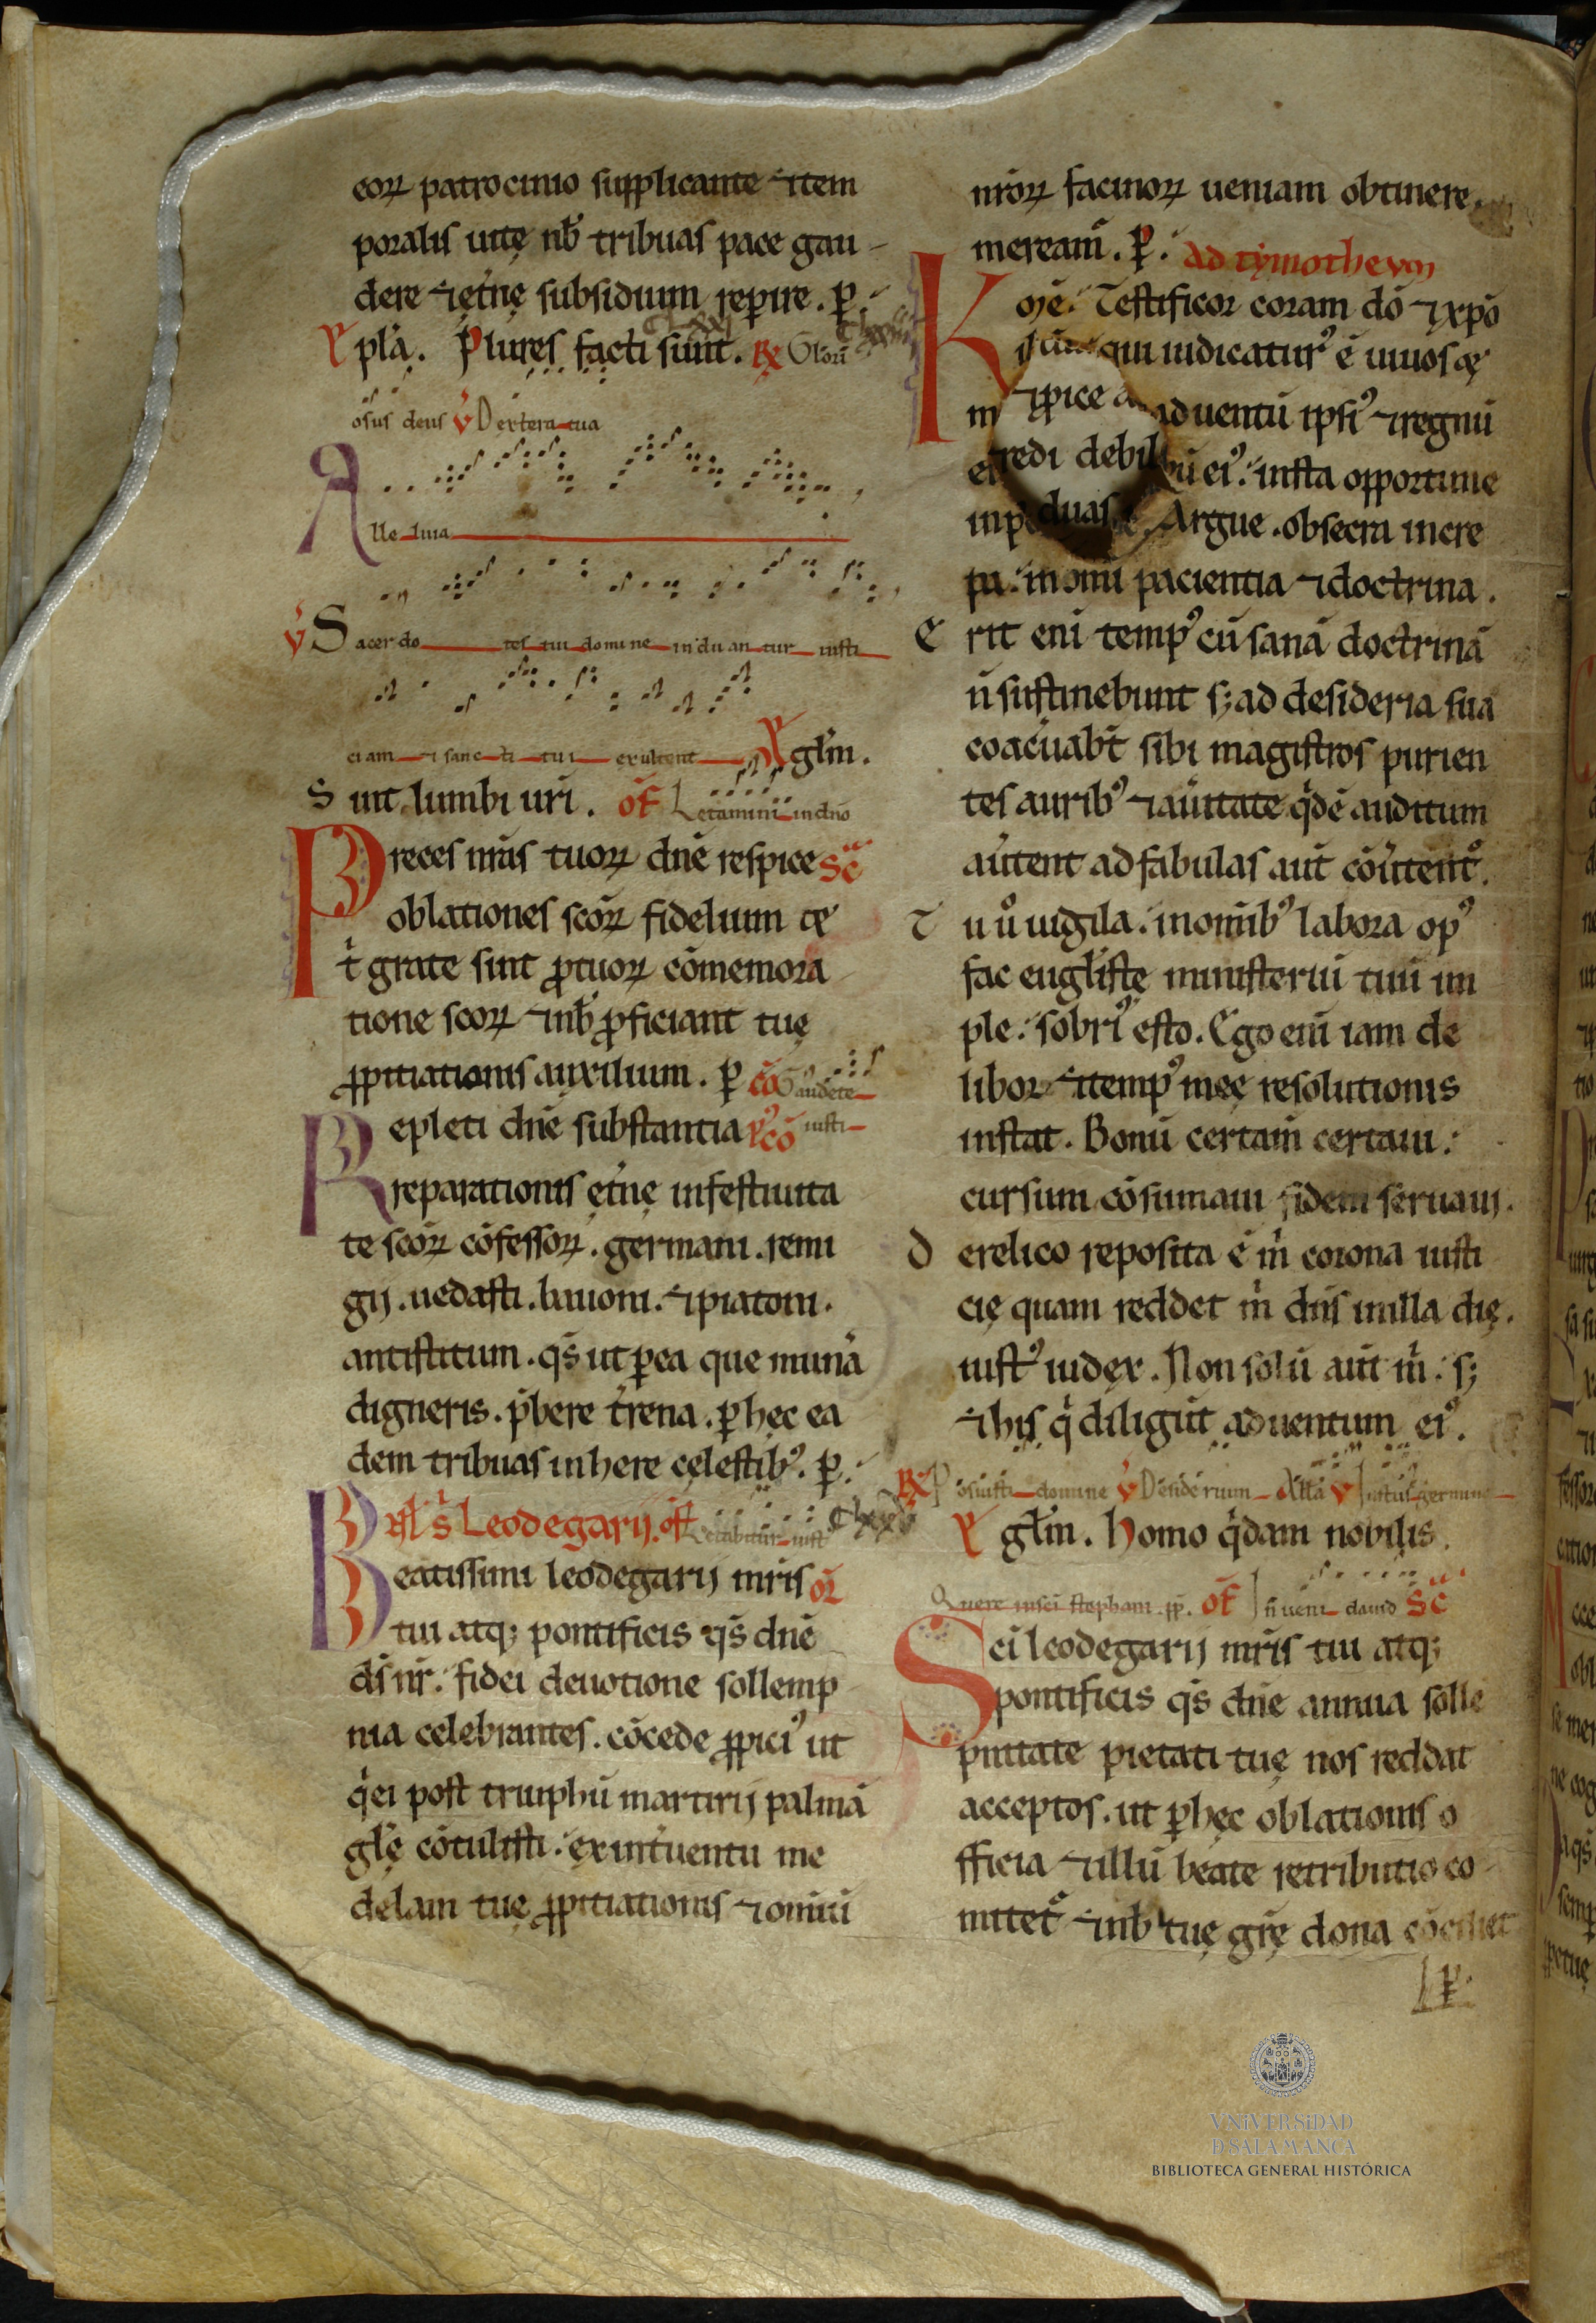 eoꝝ patrocinio supplicante ⁊ tem
poralis uitę nb̄ tribuas pace gau-
dere ⁊ ęt̾nę subsidium reꝑire. ꝑ.
Epl̄a. Plures facti sunt. ℞ Glori
osus deus ℣ Dextera tua
Alleluia
℣ Sacerdotes tui domine induantur iusti
ciam ⁊ sancti tui exultent gl̄m.
Sint lumbi ur̄i. of̄ Letamini in dn̄o
Preces mr̄is tuoꝝ dn̄e respice sc̄
oblationes sc̄oꝝ fidelium
t̾ grate sint ꝓ tuoꝝ cōmemora
tione scoꝝ ⁊ nb̄ ꝓficiant tuę
ꝓpitiationis auxilium. ꝑ cō Gaudete
iusti
Repleti dn̄e substantia p̾cō
reparationis ęt̾nę in festiuita
te scōꝝ cōfessoꝝ. germani. remi
gij. uedasti. bauoni. ⁊ piatoni.
antistitum. qs̄ ut ꝑ ea que mun̾a
digneris. p̄bere t̾rena. ꝑ hęc ea
dem tribuas inhere cęlestibꝰ. ꝑ.
s̄ Leodegarij. off̄ Letabitur iust
Beatissimi leodegarij mr̄is or̄
tui atq; pontificis qs̄ dn̄e
ds̄ nr̄. fidei deuotione sollemp
nia celebrantes. cōcede ꝓpiciꝰ ut
q̾ ei post triuphū martirij palmā
gl̄ę cōtulisti. ex int̾uentu me
delam tuę ꝓpitiationis ⁊ omniū
nr̄oꝝ facinoꝝ ueniam obtinere
meream̄. ꝑ. Ad tymotheum
Km̄ē. Testificor coram dō ⁊ xp̄o
qui iudicaturꝰ ē uiuos
aduentū ipsiꝰ ⁊ regnū
eiꝰ. insta opportune
inp Argue. obsecra incre
pa. in omi pacientia ⁊ doctrina.
Erit eni tempꝰ cū sanā doctrinā
n̄ sustinebunt s; ad desideria sua
coac̾uabt̄ sibi magistros purien
tes auribꝰ ⁊ a uitate q̾dē auditum
au̾tent ad fabulas aut̄ cōu̾tent̾.
Tu u̾o uigila. in omibꝰ labora opꝰ
fac euglistę ministeriū tuū im
ple. sobriꝰ esto. Ego eni iam de
libor ⁊ tempꝰ meę resolutionis
instat. Bonū certam̄ certaui.
cursum cōsumaui fidem seruaui.
De relico reposita ē m̾ corona iusti
cię quam reddet m̾ dn̄s in illa die.
iustꝰ iudex. Non solū aut̄ m̾. s;
⁊ his q̾ diligūt aduentum eiꝰ.
℞ Posuisti domine ℣ Desiderium All̄a ℣ Iustus germin
gl̄m. Homo q̾dam nobilis.
Quere in sc̄i stephani pp̄. of̄ Inueni dauid Sc̄
Sci leodegarij mr̄is tui atq;
pontificis qs̄ dn̄e annua solle
pnitate pietati tuę nos reddat
acceptos. ut ꝑ hęc oblationis o
fficia ⁊ illū beate retributio co
mitet̾ ⁊ nb̄ tuę gr̄ę dona
VNiVERSiDAD
DSALAMANCA
BIBLIOTECA GENERAL HISTÓRICA